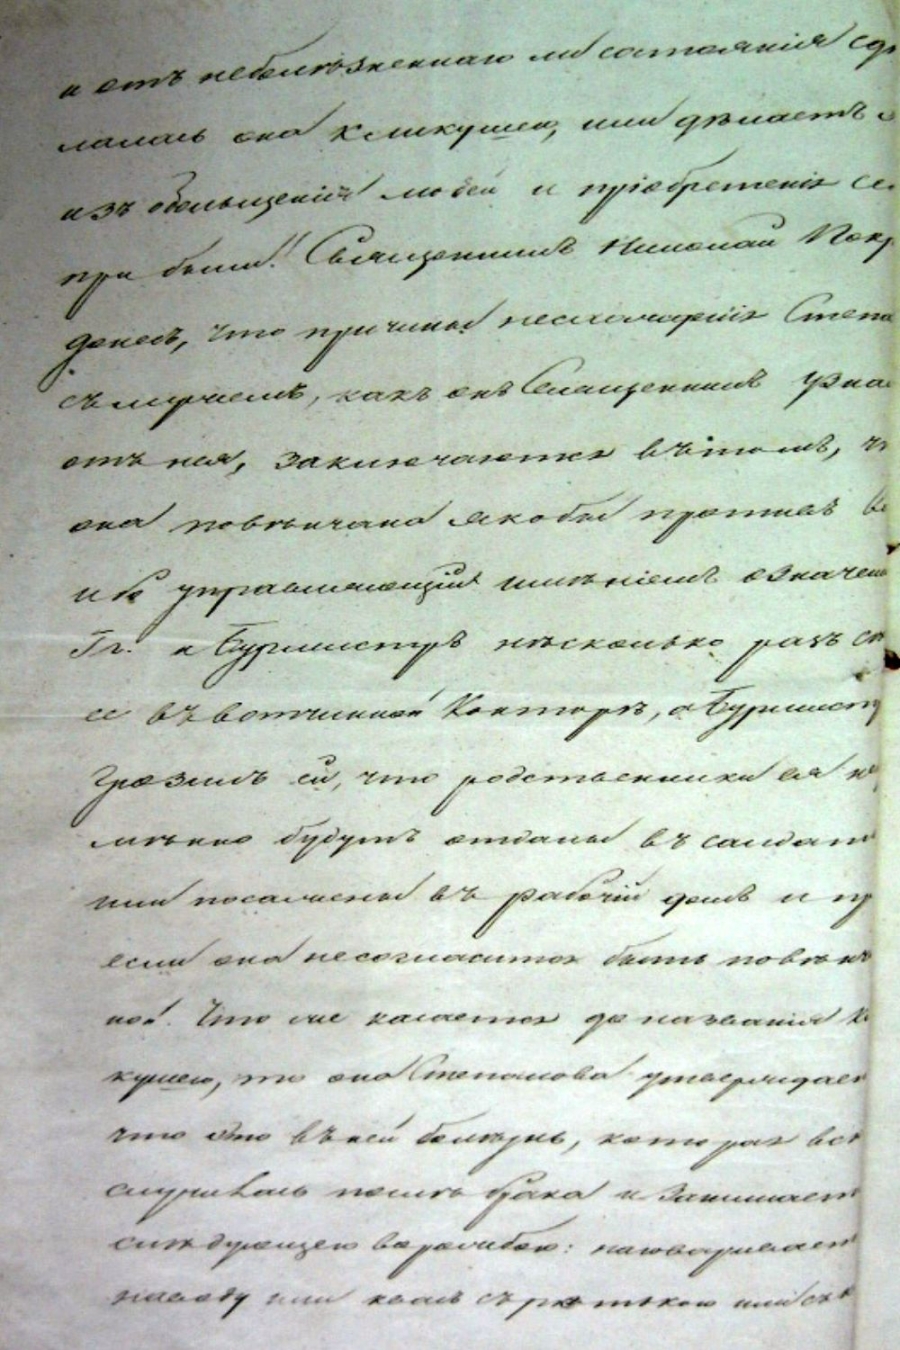 и отъ неболѣзненнаго ли состоянія сдѣ
лалась она кликушею, или дѣлаетъ
изъ обольщенія людей и пріобретенія се
прибыли! Священникъ Николай Покр
донесъ, что причины несогласія Степа
съ мужемъ, какъ онъ Священникъ узна
отъ нея, заключаются въ томъ, чт
она повѣнчана якобы противъ во
ибо управляющій имѣніемъ означен
Гг. и Бурмистръ нѣсколько разъ
ее въ вотчинной Конторѣ, а Бурмист
грозилъ ей, что родственники ея не
мѣнно будутъ отданы въ солдат
или посажены въ рабочій домъ и пр
если она не согласится быть повѣнч
ной. Что же касается до названія к
кушею, то она Степанова утверждает
что это въ ней болѣзнь, которая вск
случилась послѣ брака и
слѣдующею ворожбою: наговаривает
на воду или квасъ съ или